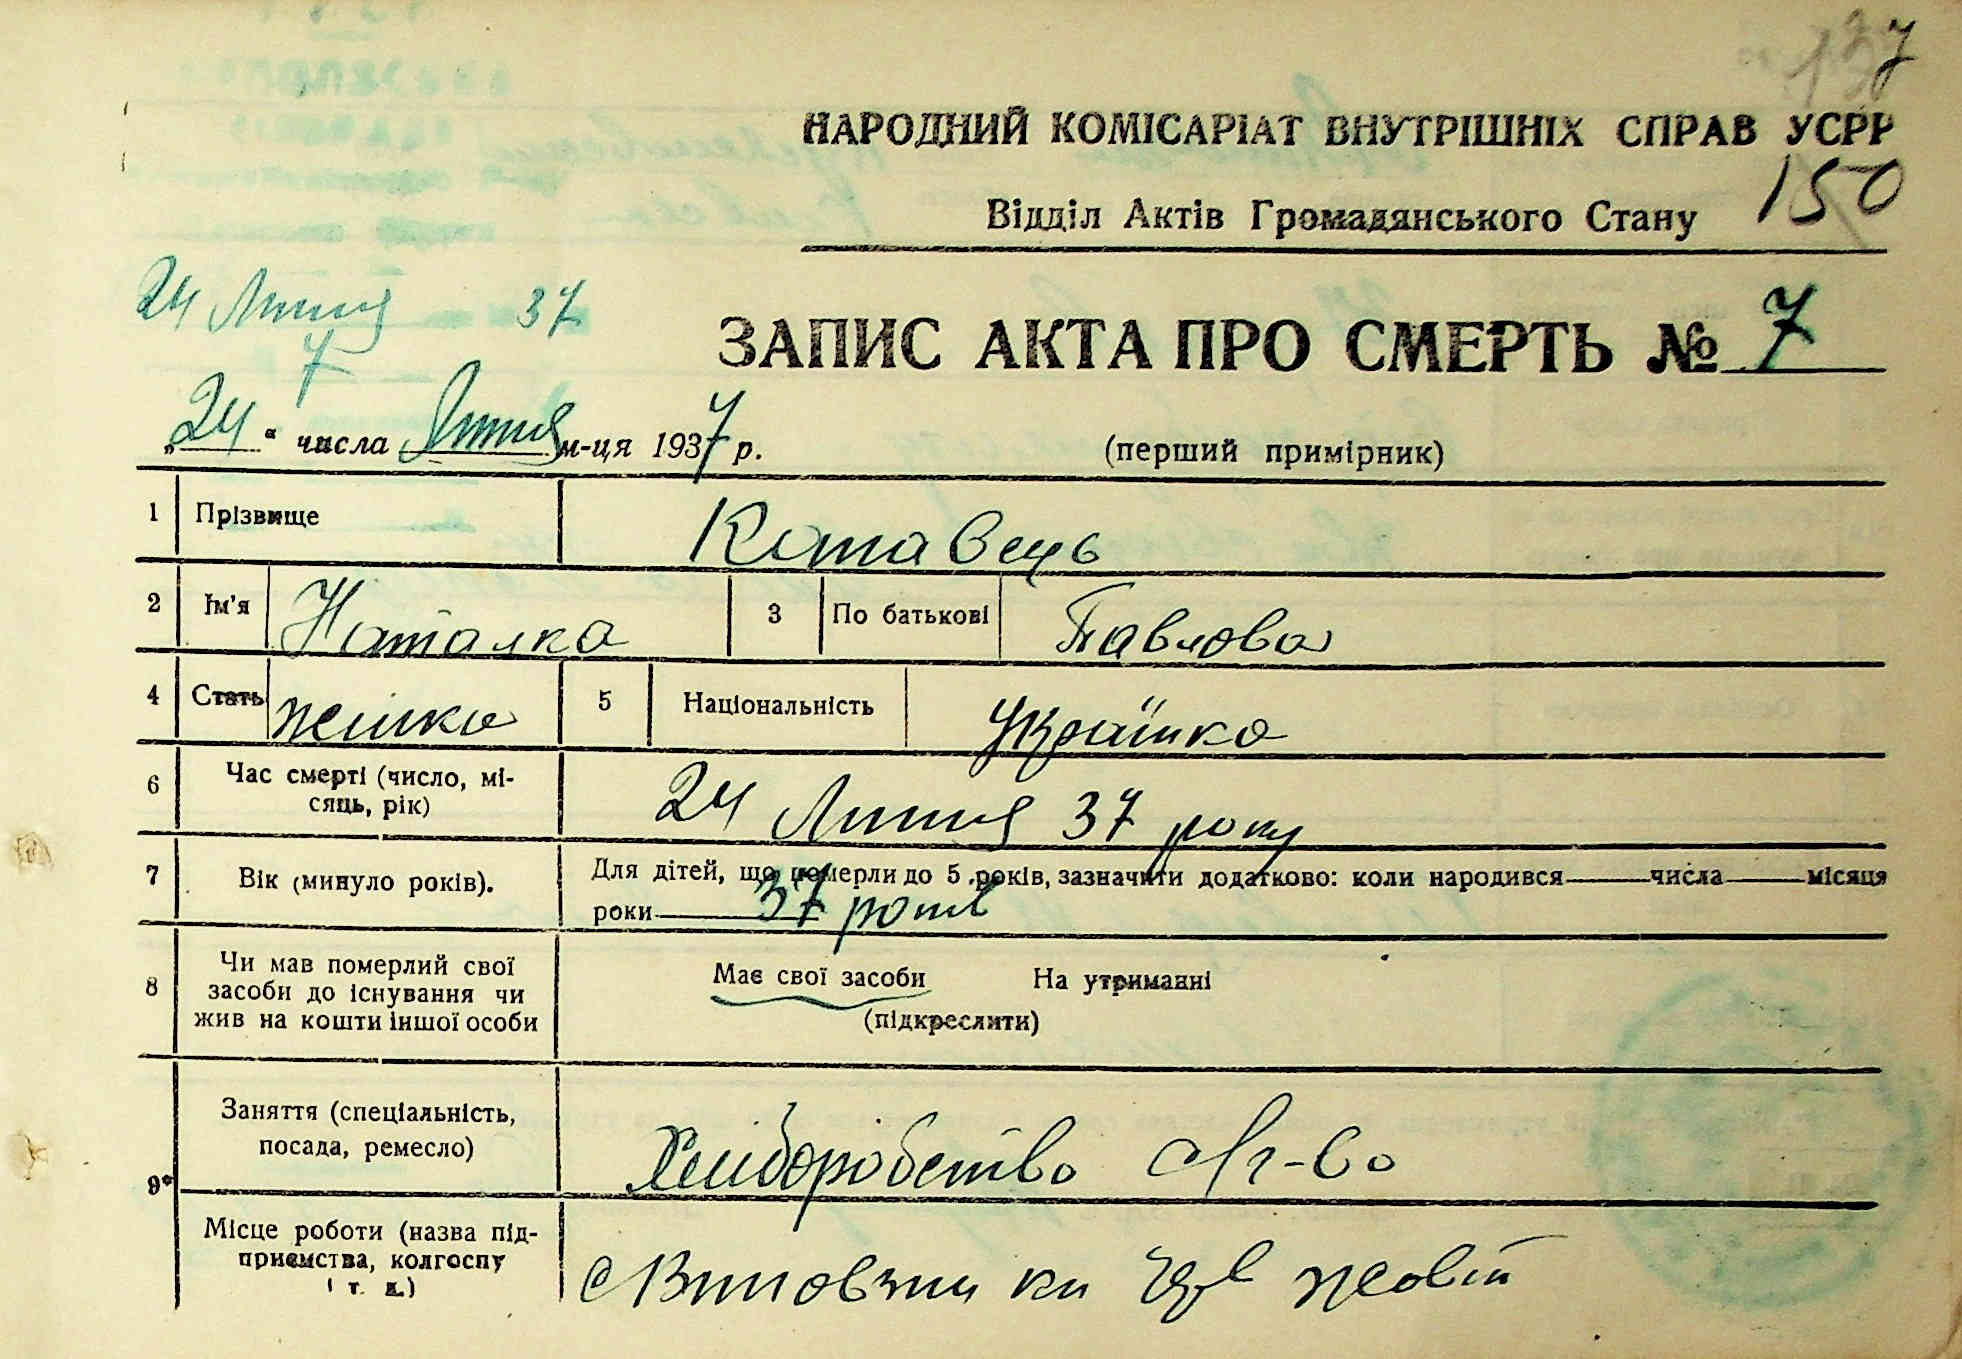 7
НАРОДНИЙ КОМІСАРІАТ ВНУТРІШНІХ СПРАВ УСРР
150
Відділ Актів Громадянського Стану
24 Липня 37
7
ЗАПИС АКТА ПРО СМЕРТЬ № 7
„24“ числа Липня м-ця 1937 р.
(перший примірник)
1 Прізвище Котавець
2 Ім'я Наталка 3 По батькові Павлова
4 Стать жінка 5 Національність Українка
6 Час смерті (число, мі-
сяць, рік) 24 Липня 37 року
7 Вік (минуло років). Для дітей, що померли до 5 років, зазначити додатково: коли народився числа місяця
роки 37 років
8 Чи мав померлий свої
засоби до існування чи
жив на кошти іншої особи
Має свої засоби На утриманні
(підкреслити)
9* Заняття (спеціальність,
посада, ремесло) Хліборобство
Місце роботи (назва під-
приємства, колгоспу
і т. д.)